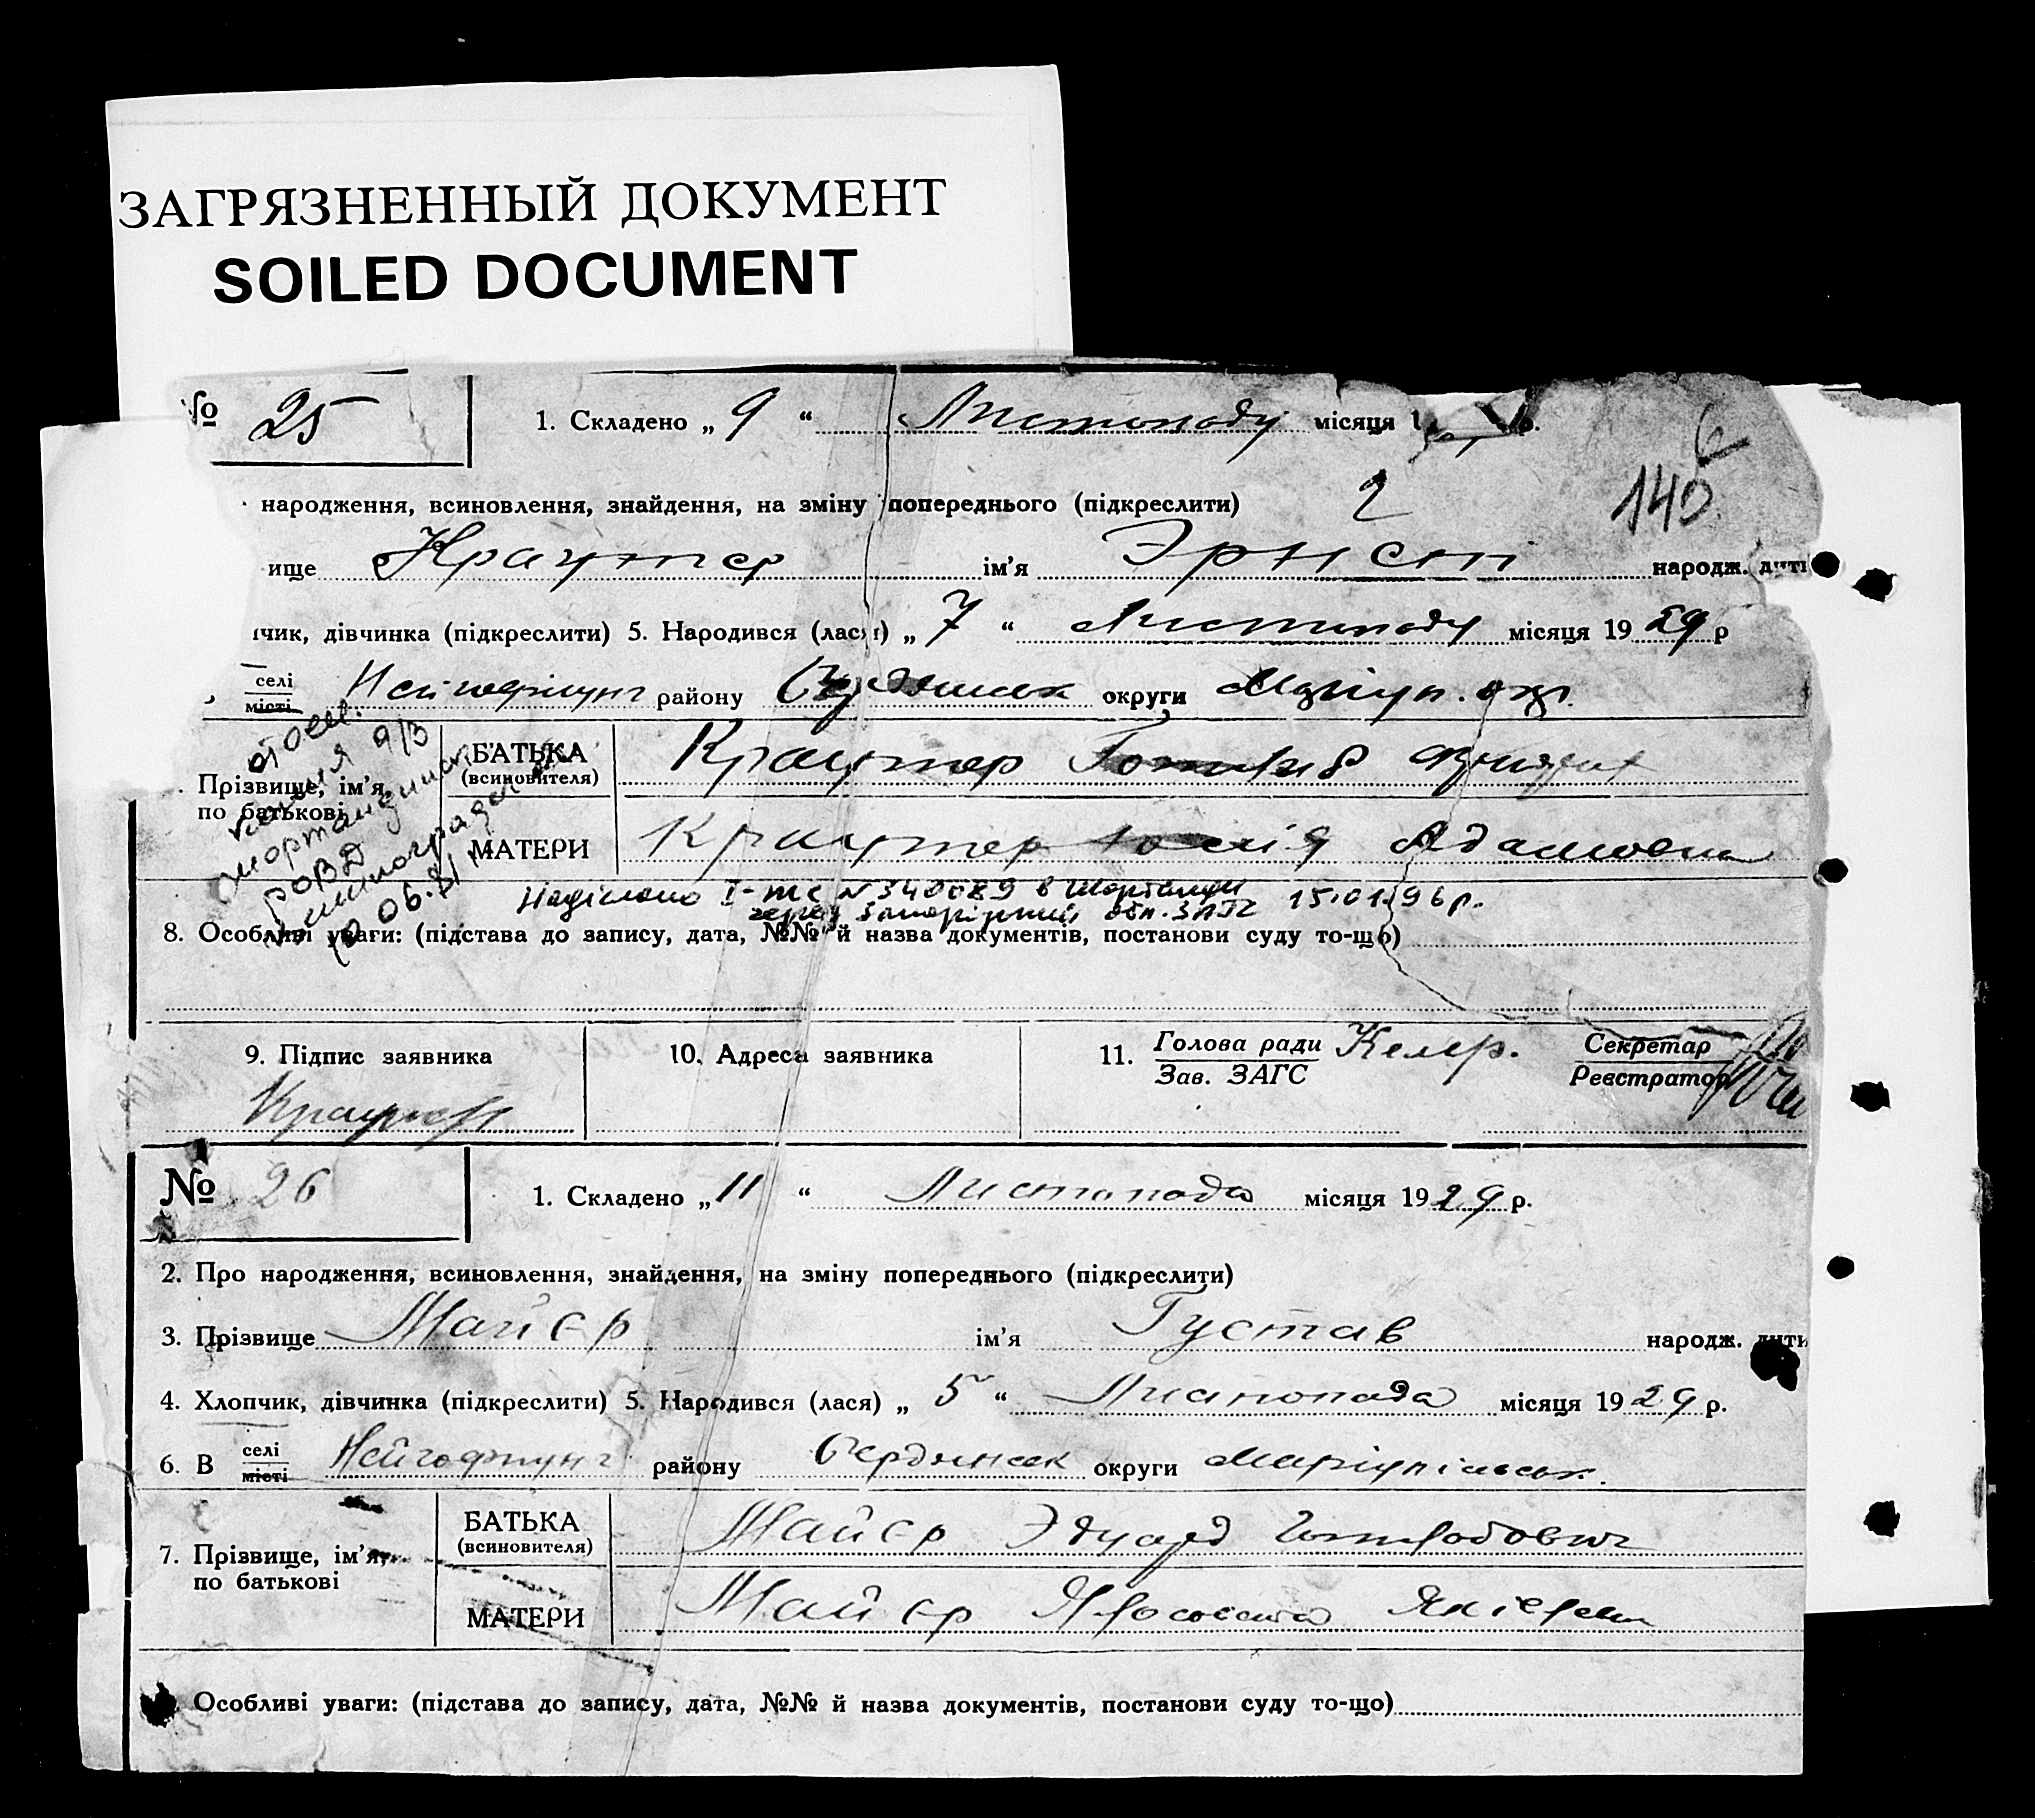 ЗАГРЯЗНЕННЫЙ ДОКУМЕНТ
SOILED DOCUMENT
№ 25 1. Складено „ 9 “ Листопаду місяця
народження, всиновлення, знайдення, на зміну попереднього (підкреслити) 2 140
ище Краутер ім’я Эрнст народж. дити
чик, дівчинка (підкреслити) 5. Народився (лася) „ 7 “ Листопаду місяця 19 29 р
селі
місті
Нейгофнунг району округи Маріуп. окр.
Прізвище, ім’я,
по батькові
БАТЬКА
(всиновителя)
Краутер
МАТЕРИ
Краутер Адамовна
15.01.96 р.
8. Особливі уваги: (підстава до запису, дата, №№ й назва документів, постанови суду то-що)
9. Підпис заявника 10. Адреса заявника 11. Голова ради Келер. Секретар
Зав. ЗАГС Реєстратор
№ 26 1. Складено „ 11 “ Листопада місяця 19 29 р.
2. Про народження, всиновлення, знайдення, на зміну попереднього (підкреслити)
3. Прізвище Майєр ім’я Густав народж. дити
4. Хлопчик, дівчинка (підкреслити) 5. Народився (лася) „ 5 “ Листопада місяця 19 29 р.
6. В селі
місті
Нейгофнунг району Бердянськ округи Маріупільськ.
7. Прізвище, ім’я,
по батькові
БАТЬКА
(всиновителя)
Майєр Эдуард Готлобович
МАТЕРИ
Майєр
Особливі уваги: (підстава до запису, дата, №№ й назва документів, постанови суду то-що)